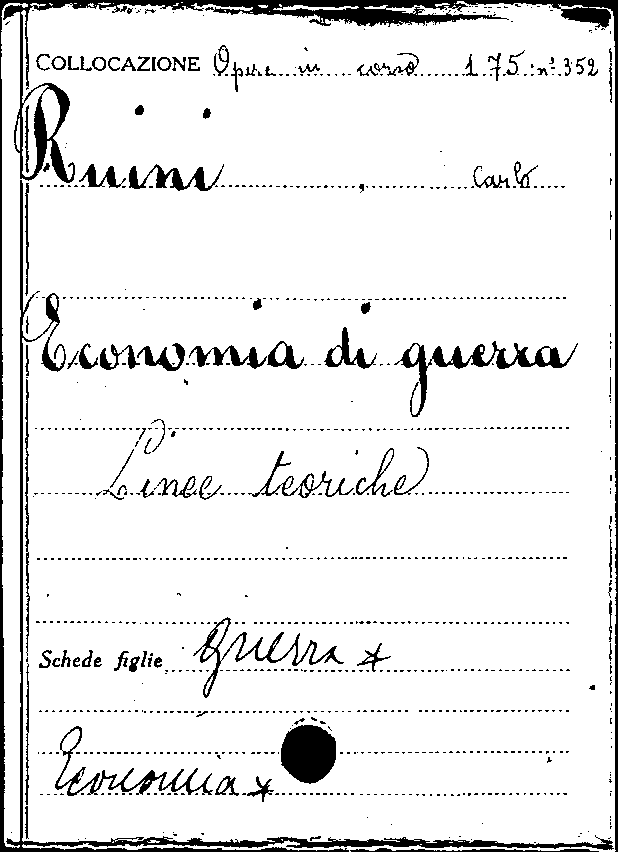 COLLOCAZIONE Opere in corso 1.75 n.° 352
Ruini, Carlo
Economia di guerra
Linee teoriche
Schede figlie Guerra *
Economia *